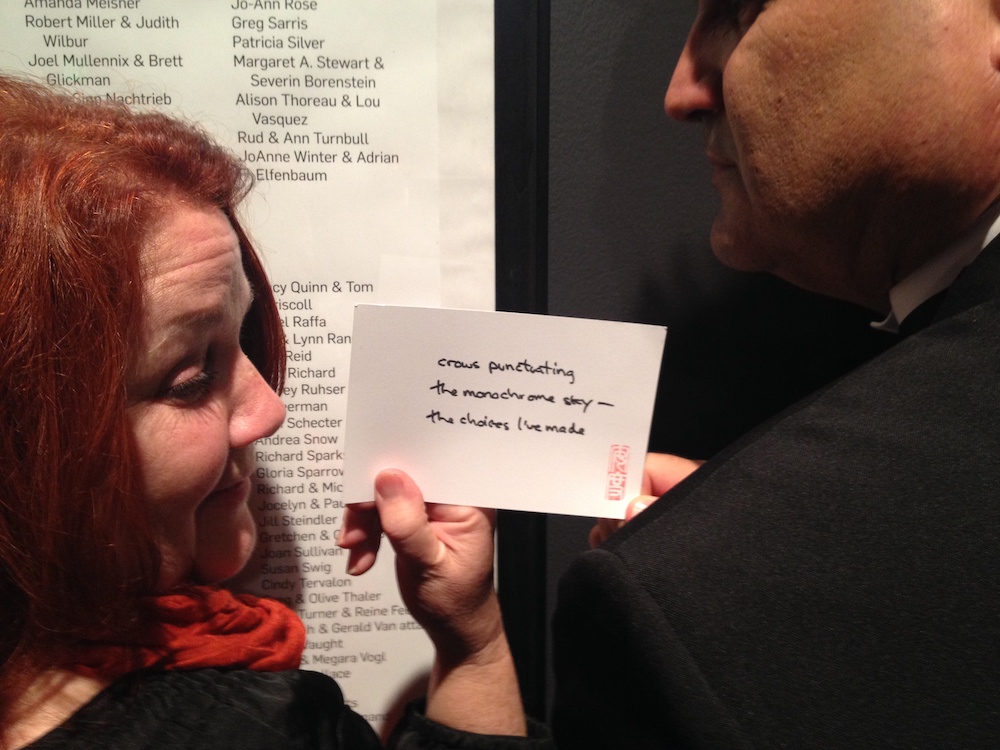 Amanda Meisner
Robert Miller & Judith
Wilbur
Joel Mullennix & Brett
Glickman
Nachtrieb
Jo-Ann Rose
Greg Sarris
Patricia Silver
Margaret A. Stewart &
Severin Borenstein
Alison Thoreau & Lou
Vasquez
Rud & Ann Turnbull
JoAnne Winter & Adrian
Elfenbaum
Quinn & Tom
Raffa
& Lynn
Reid
Richard
Ruhser
Schecter
Andrea Snow
Richard
Gloria
Richard &
Jocelyn &
Jill Steindler
Gretchen &
Joan Sullivan
Susan Swig
Cindy Tervalon
& Olive Thaler
Turner & Reine
& Gerald Van
Vaught
& Megara Vogl
crows punctuating
the monochrome sky—
the choices I've made